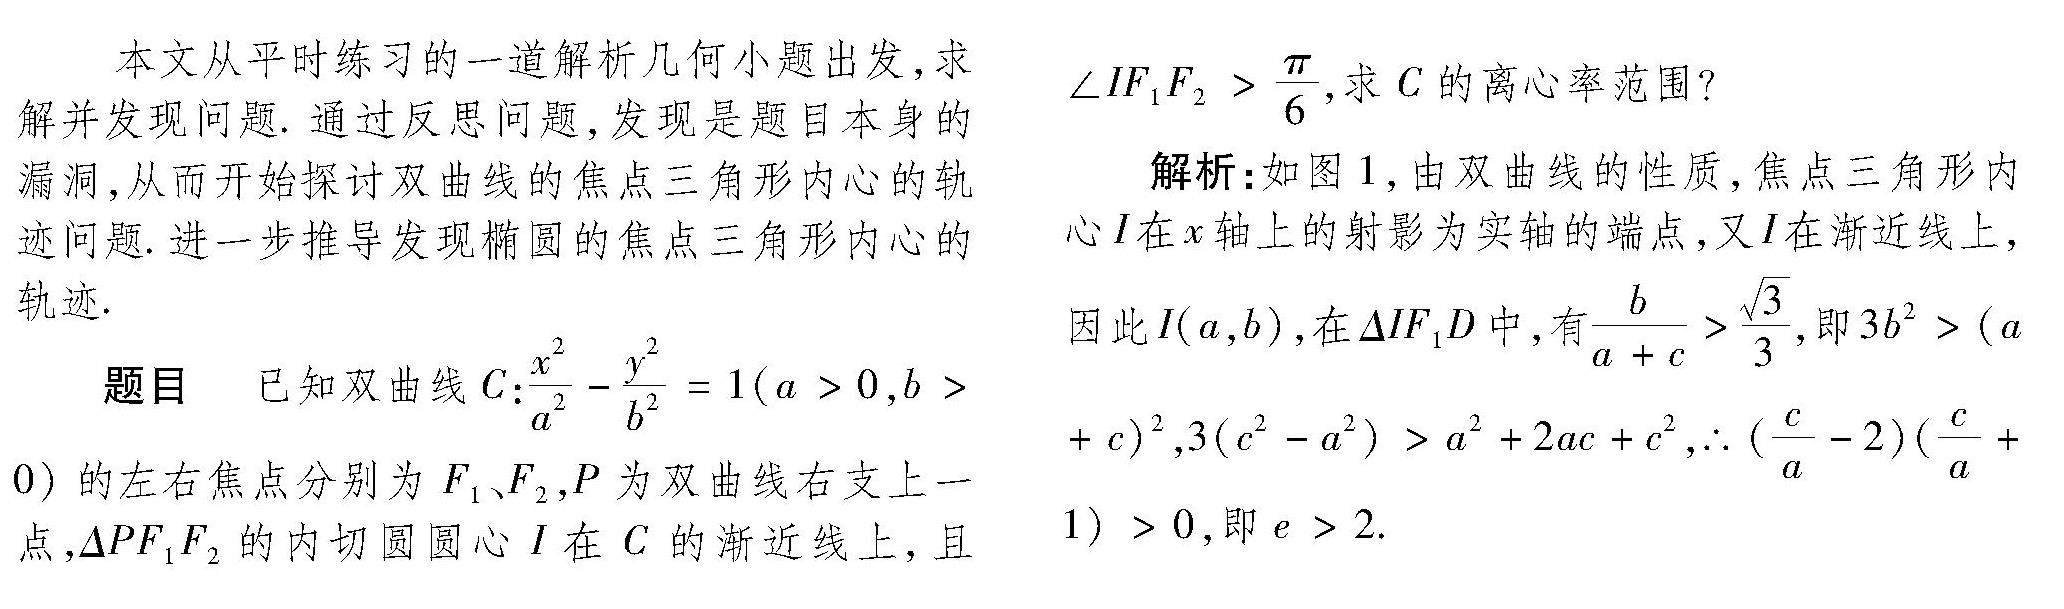 本文从平时练习的一道解析几何小题出发,求
解并发现问题. 通过反思问题,发现是题目本身的
漏洞,从而开始探讨双曲线的焦点三角形内心的轨
迹问题. 进一步推导发现椭圆的焦点三角形内心的
轨迹.
题目 已知双曲线 C:x²/a² − y²/b² = 1(a > 0,b >
0) 的左右焦点分别为 F₁、F₂,P 为双曲线右支上一
点,ΔPF₁F₂ 的内切圆圆心 I 在 C 的渐近线上, 且
∠IF₁F₂ > π/6,求 C 的离心率范围?
解析:如图 1, 由双曲线的性质, 焦点三角形内
心 I 在 x 轴上的射影为实轴的端点,又 I 在渐近线上,
因此 I(a,b),在 ΔIF₁D 中,有 b/(a + c) > √3/3,即 3b² > (a
+ c)²,3(c² − a²) > a² + 2ac + c²,∴ (c/a − 2)(c/a +
1) > 0,即 e > 2.